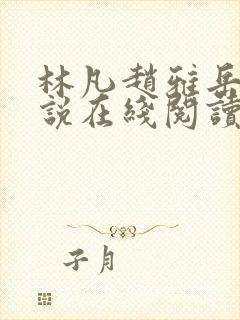 林凡趙雅岳
說在綫閱讀
子月